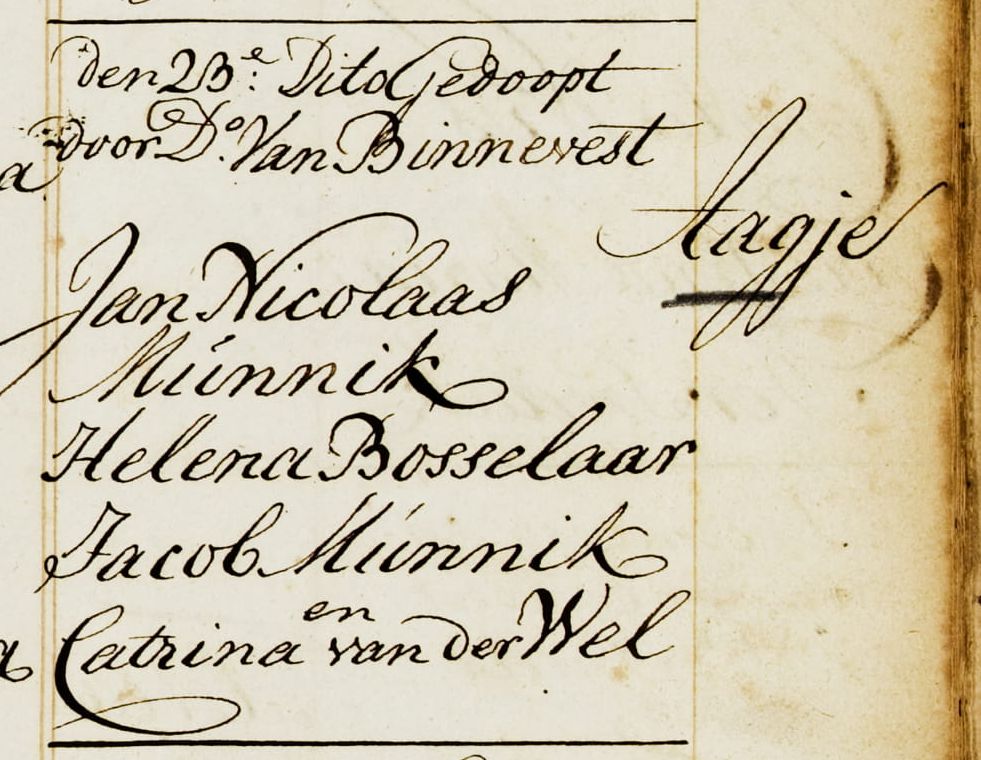 den 23.e Dito Gedoopt
door D.o Van Binnevest
Aagje
Jan Nicolaas
Múnnik
Helena Bosselaar
Jacob Múnnik
en
Catrina van der Wel